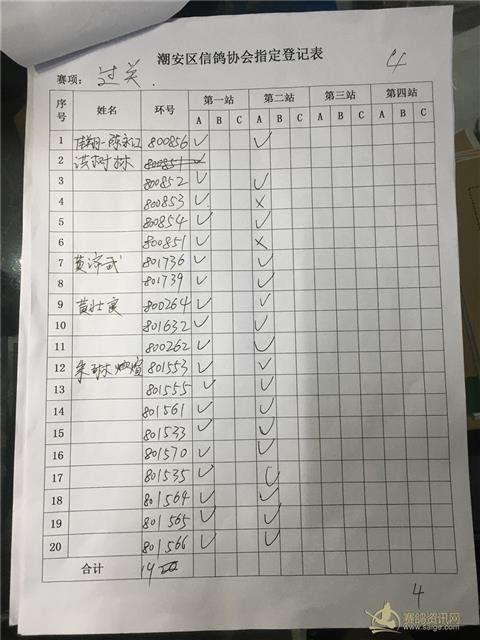 潮安区信鸽协会指定登记表
4
赛项: 过关.
序号 姓名 环号 第一站 第二站 第三站 第四站
A B C A B C A B C A B C
1 陈永江 800856 ✓ ✓
2 洪树林 800851 ✓
3 800852 ✓ ✓
4 800853 ✓ ×
5 800854 ✓ ✓
6 800851 ✓ ×
7 黄 武 801736 ✓ ✓
8 801739 ✓ ✓
9 黄壮 800264 ✓ ✓
10 801632 ✓ ✓
11 800262 ✓ ✓
12 朱 801553 ✓ ✓
13 801555 ✓ ✓
14 801561 ✓ ✓
15 801533 ✓ ✓
16 801570 ✓ ✓
17 801535 ✓ ✓
18 801564 ✓ ✓
19 801565 ✓ ✓
20 801566 ✓ ✓
合计 19
4
赛鸽资讯网
www.saige.com